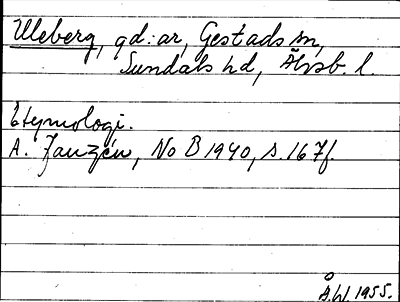 Uleberg, gd:ar, Gestads sn,
Sundals hd, Älvsb. l.
Etymologi.
A. Janzén, No B 1940, s. 167f.
Å.W. 1955.